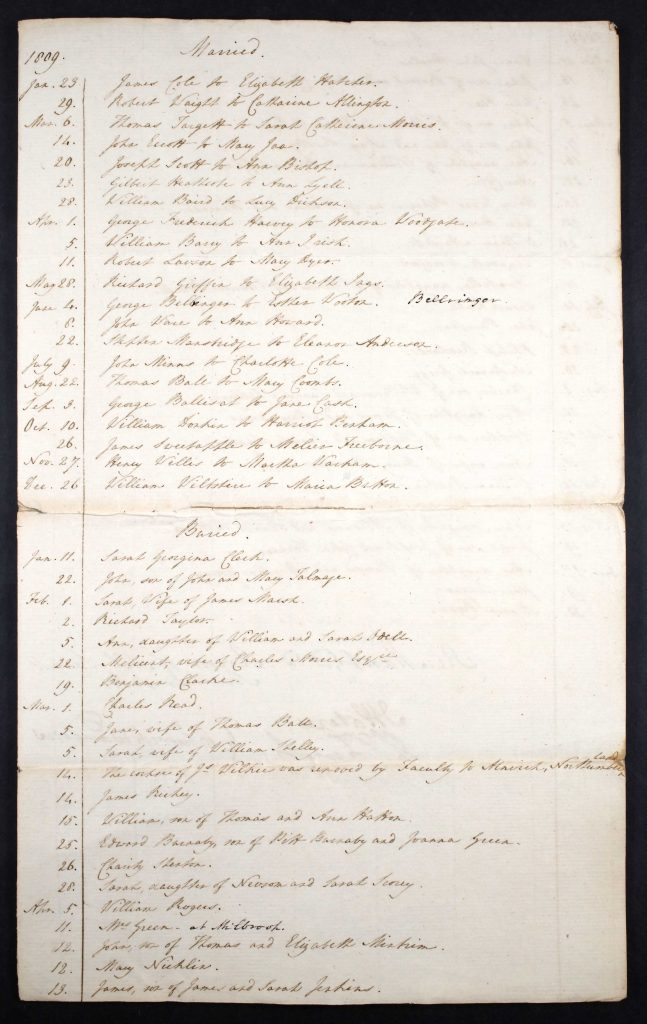 1809. Married.
Jan. 23 James Cole to Elizabeth Hatcher.
29. Robert Vaight to Catharine Allington.
Mar. 6. Thomas Targett to Sarah Catherine Morris.
14. John Escott to Mary
20. Joseph Scott to Ann Bishop.
23. Gilbert Heathcote to Ann Lyell.
28. William Baird to Lucy Dickson.
Apr. 1. George Frederick Harvey to Honora Woodgate.
5. William Barry to Ann Irish.
11. Robert Lawson to Mary Dyer.
May 28. Richard Griffin to Elizabeth
June 4. George Bellringer to Esther Bellringer.
8. John Vare to Ann Howard.
22. Stephen Mansbridge to Eleanor Anderson.
July 9. John Minns to Charlotte Cole.
Aug. 22. Thomas Ball to Mary Coombs.
Sep. 3. George to Jane Cash.
Oct. 10. William to Harriot Benham.
26. James Sweetapple to Freeborne.
Nov. 27. Henry to Martha Varham.
Dec. 26 William Wiltshire to Maria Batton.
Buried.
Jan. 11. Sarah Georgina Clerk.
22. John, son of John and Mary Talmage.
Feb. 1. Sarah, Wife of James Marsh.
2. Richard Taylor.
5. Ann, daughter of William and Sarah Odell.
22. wife of Charles Morris Esqre
19. Benjamin Clarke.
Mar. 1. Charles Read.
5. Jane, wife of Thomas Ball.
5. Sarah, wife of William Shelley.
14. The corpse of Js. Wilkie was removed by Faculty to Alnwick, Northumberland
14. James Richey.
15. William, son of Thomas and Ann Hatton.
25. Edward Barnaby, son of Pitt Barnaby and Joanna Green.
26. Charity
28. Sarah, daughter of Newsom and Sarah Scorey.
Apr. 5. William Rogers.
11. Mrs Green - at Millbrook.
12. John, son of Thomas and Elizabeth Mintrim.
12. Mary Nicklin.
13. James, son of James and Sarah Jerkins.